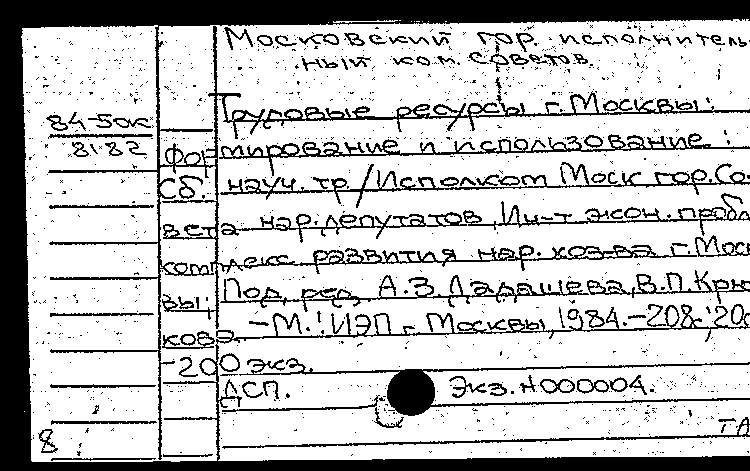 Московский гор. исполнитель-
ный ком. советов.
Трудовые ресурсы г. Москвы:
84-5ок
8182
Формирование и использование:
Сб. науч. тр./Исполком Моск гор. Со-
вета нар. депутатов, Ин-т экон. пробл
комплекс развития нар. хоз-ва г. Моск
вы; Под ред. А.З. Дадашева, В.П. Крю
кова. -М.: ИЭП г. Москвы, 1984.-208.; 20с
-200 экз.
ДСП. Экз. N000004.
8
ТА